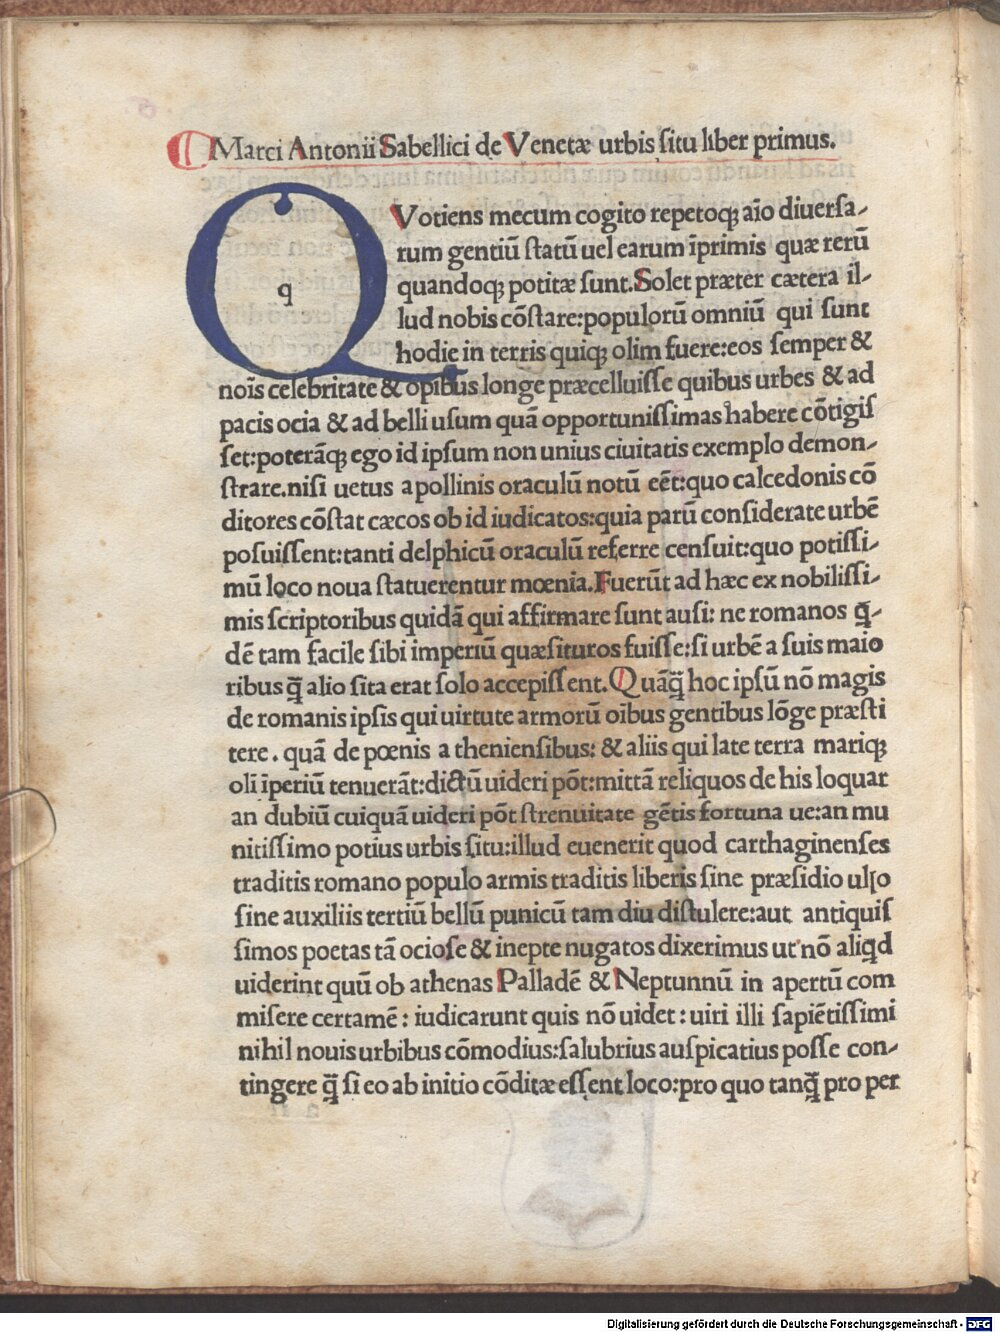 Marci Antonii Sabellici de Venetæ urbis ſitu liber primus.
QVotiens mecum cogito repetoqꝫ aīo diuerſa-
rum gentiū ſtatū uel earum īprimis quæ rerū
quandoqꝫ potitæ ſunt.Solet præter cætera il-
lud nobis cōſtare:populorū omniū qui ſunt
hodie in terris quiqꝫ olim fuere:eos ſemper &
noīs celebritate & opibus longe præcelluiſſe quibus urbes & ad
pacis ocia & ad belli uſum quā opportuniſſimas habere cōtigiſ
ſet:poterāqꝫ ego id ipſum non unius ciuitatis exemplo demon-
ſtrare.niſi uetus apollinis oraculū notū eēt:quo calcedonis cō
ditores cōſtat cæcos ob id iudicatos:quia parū conſiderate urbē
poſuiſſent:tanti delphicū oraculū referre cenſuit:quo potiſſi-
mū loco noua ſtatuerentur mœnia.Fuerūt ad hæc ex nobiliſſi-
mis ſcriptoribus quidā qui affirmare ſunt auſi: ne romanos q̄-
dē tam facile ſibi imperiū quæſituros fuiſſe:ſi urbē a ſuis maio
ribus q̄ alio ſita erat ſolo accepiſſent.Quāq̄ hoc ipſū nō magis
de romanis ipſis qui uirtute armorū oībus gentibus lōge præſti
tere. quā de pœnis athenienſibus: & aliis qui late terra mariqꝫ
oli īperiū tenuerāt:dictū uideri pōt:mittā reliquos de his loquar
an dubiū cuiquā uideri pōt ſtrenuitate gētis fortuna ue:an mu
nitiſſimo potius urbis ſitu:illud euenerit quod carthaginenſes
traditis romano populo armis traditis liberis ſine præſidio ullo
ſine auxiliis tertiū bellū punicū tam diu diſtulere:aut antiquiſ
ſimos poetas tā ocioſe & inepte nugatos dixerimus ut nō aliq̄d
uiderint quū ob athenas Palladē & Neptunnū in apertū com
miſere certamē: iudicarunt quis nō uidet: uiri illi ſapiētiſſimi
nihil nouis urbibus cōmodius:ſalubrius auſpicatius poſſe con-
tingere q̄ ſi eo ab initio cōditæ eſſent loco:pro quo tanq̄ pro per
Digitalisierung gefördert durch die Deutsche Forschungsgemeinschaft - DFG